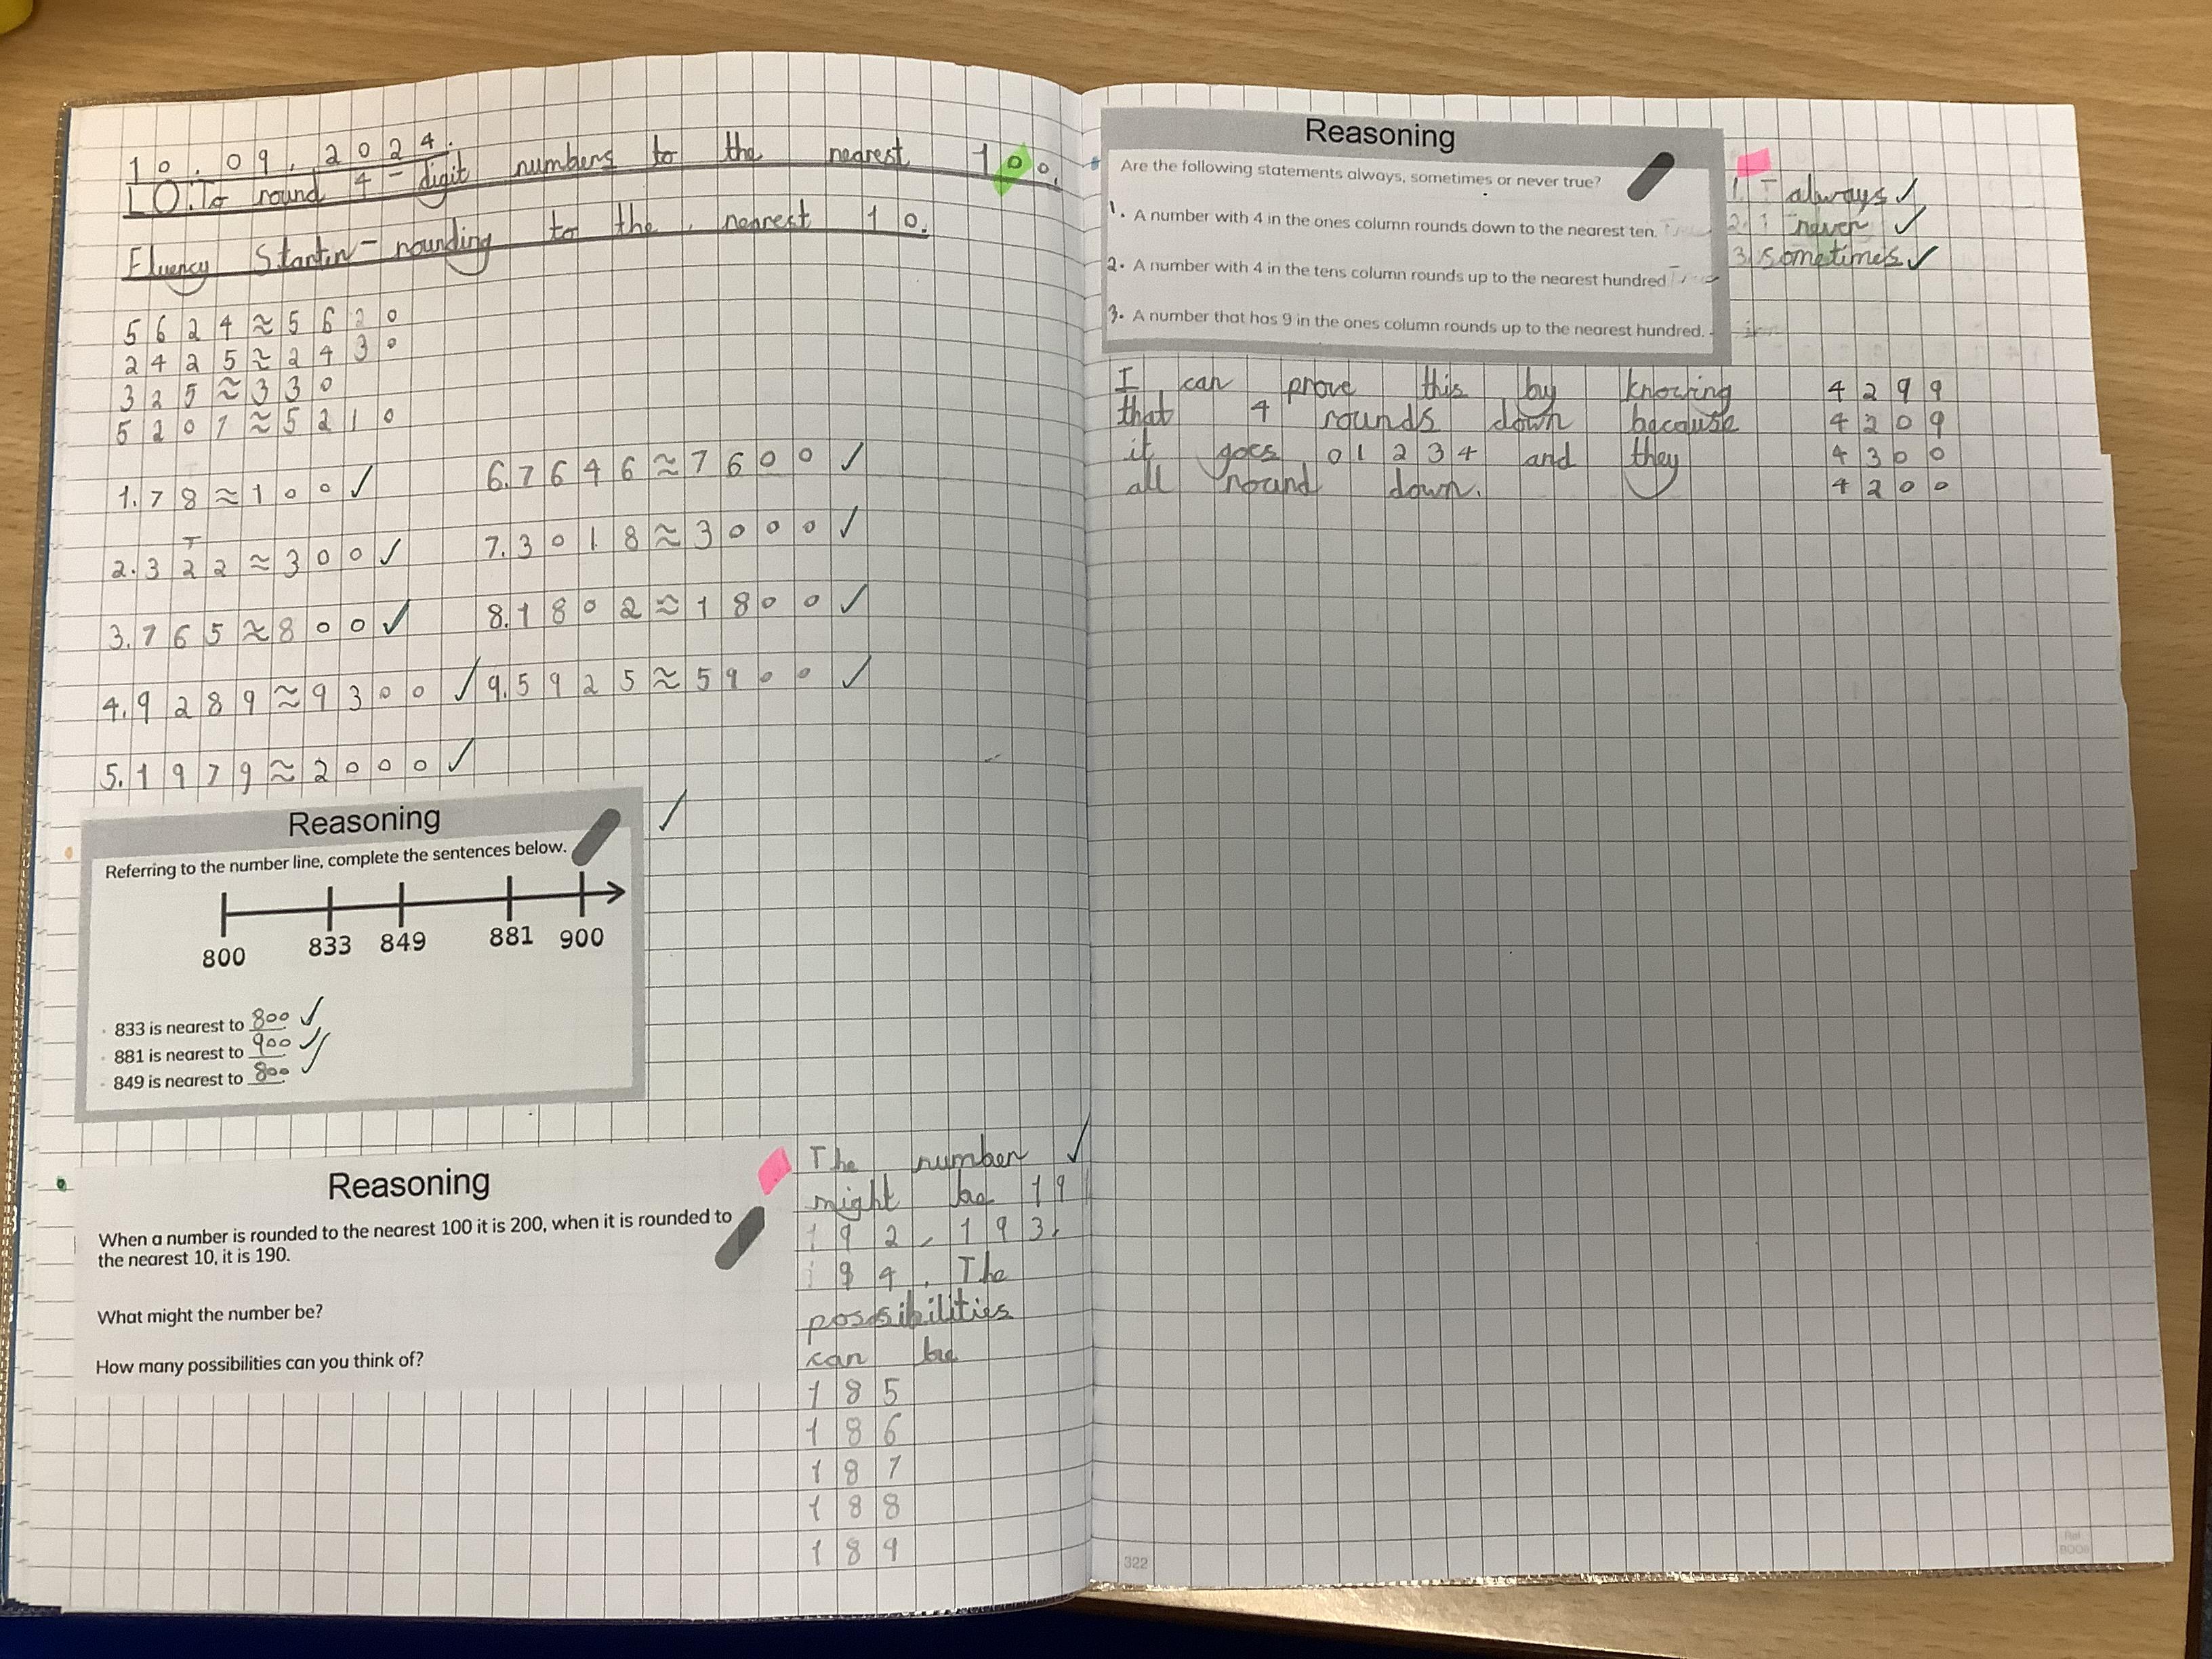 10.09.2024.
LO: To round 4-digit numbers to the nearest 100.
Fluency Starter - rounding to the nearest 10.
5624≈5620
2425≈2430
325≈330
5207≈5210
1. 78≈100 ✓
T
2. 322≈300 ✓
3. 765≈800 ✓
4. 9289≈9300 ✓
5. 1979≈2000 ✓
6. 7646≈7600 ✓
7. 3018≈3000 ✓
8. 1802≈1800 ✓
9. 5925≈5900 ✓
Reasoning ✓
Referring to the number line, complete the sentences below.
800 833 849 881 900
833 is nearest to 800 ✓
881 is nearest to 900 ✓
849 is nearest to 800 ✓
Reasoning
When a number is rounded to the nearest 100 it is 200, when it is rounded to
the nearest 10, it is 190.
What might the number be?
How many possibilities can you think of?
The number ✓
might be 191
192, 193,
194. The
possibilities
can be
185
186
187
188
189
Reasoning
Are the following statements always, sometimes or never true?
1. A number with 4 in the ones column rounds down to the nearest ten.
2. A number with 4 in the tens column rounds up to the nearest hundred
3. A number that has 9 in the ones column rounds up to the nearest hundred.
1. T always ✓
2. never ✓
3. sometimes ✓
I can prove this by knowing
that 4 rounds down because
it goes 0 1 2 3 4 and they
all round down.
4299
4209
4300
4200
322